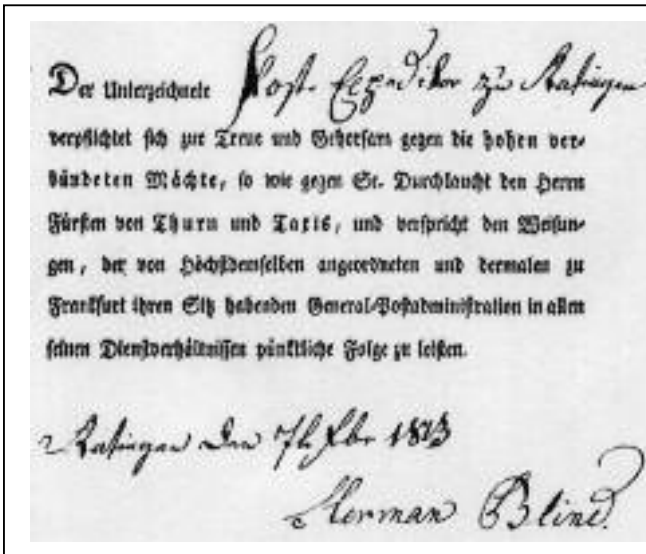 Der Unterzeichnete Post-Expeditor zu Ratingen
verpflichtet sich zur Treue und Gehorsam gegen die hohen ver-
bündeten Mächte, so wie gegen Sr. Durchlaucht den Herrn
Fürsten von Thurn und Taxis, und verspricht den Weisun-
gen, der von Höchstdemselben angeordneten und dermalen zu
Frankfurt ihren Sitz habenden General-Postadministration in allen
seinen Dienstverhältnissen pünktliche Folge zu leisten.
Ratingen den 1813
Herman Blind.